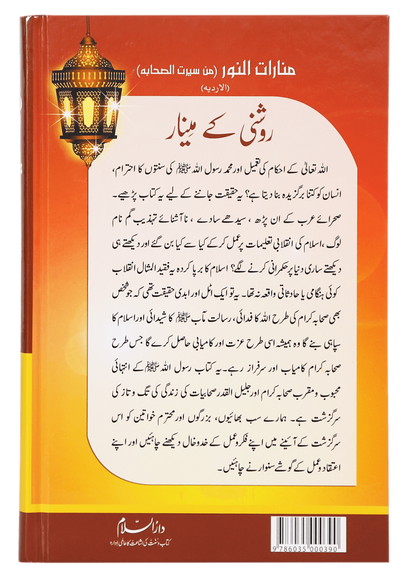 منارات النور (من سيرت الصحابه)
(الارديه)
روشنی کے مینار
اللہ تعالیٰ کے احکام کی تعمیل اور محمد رسول اللہ ﷺ کی سنتوں کا احترام،
انسان کو کتنا برگزیدہ بنا دیتا ہے؟ یہ حقیقت جاننے کے لیے یہ کتاب پڑھیے۔
صحرائے عرب کے ان پڑھ، سیدھے سادے، نا آشنائے تہذیب گم نام
لوگ، اسلام کی انقلابی تعلیمات پر عمل کر کے کیا سے کیا بن گئے اور دیکھتے ہی
دیکھتے ساری دنیا پر حکمرانی کرنے لگے؟ اسلام کا برپا کردہ یہ فقید المثال انقلاب
کوئی ہنگامی یا حادثاتی واقعہ نہ تھا۔ یہ تو ایک اٹل اور ابدی حقیقت تھی کہ جو شخص
بھی صحابہ کرام کی طرح اللہ کا فدائی، رسالت مآب ﷺ کا شیدائی اور اسلام کا
سپاہی بنے گا وہ ہمیشہ اسی طرح عزت اور کامیابی حاصل کرے گا جس طرح
صحابہ کرام کامیاب اور سرفراز رہے۔ یہ کتاب رسول اللہ ﷺ کے انتہائی
محبوب و مقرب صحابہ کرام اور جلیل القدر صحابیات کی زندگی کی تگ و تاز کی
سرگزشت ہے۔ ہمارے سب بھائیوں، بزرگوں اور محترم خواتین کو اس
سرگزشت کے آئینے میں اپنے فکر و عمل کے خدوخال دیکھنے چاہئیں اور اپنے
اعتقاد و عمل کے گوشے سنوارنے چاہئیں۔
دارالسلام
کتاب و سنت کی اشاعت کا عالمی ادارہ
9 786035 000390